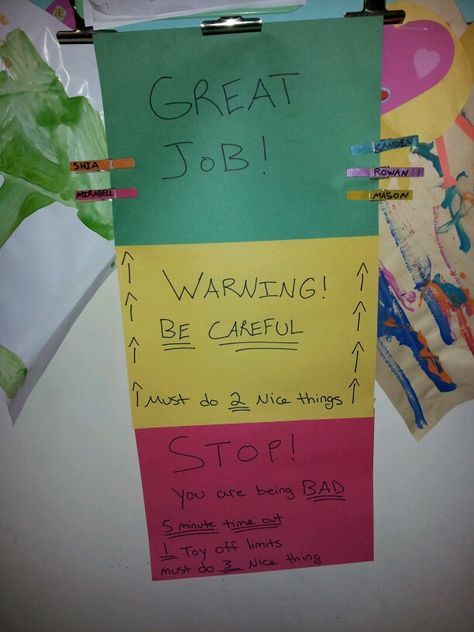 GREAT
JOB!
SHIA
MIRABELL
CAMDEN
ROWAN
MASON
WARNING!
BE CAREFUL
Must do 2 Nice things
STOP!
You are being BAD
5 minute time out
1 Toy off limits
must do 3 Nice thing